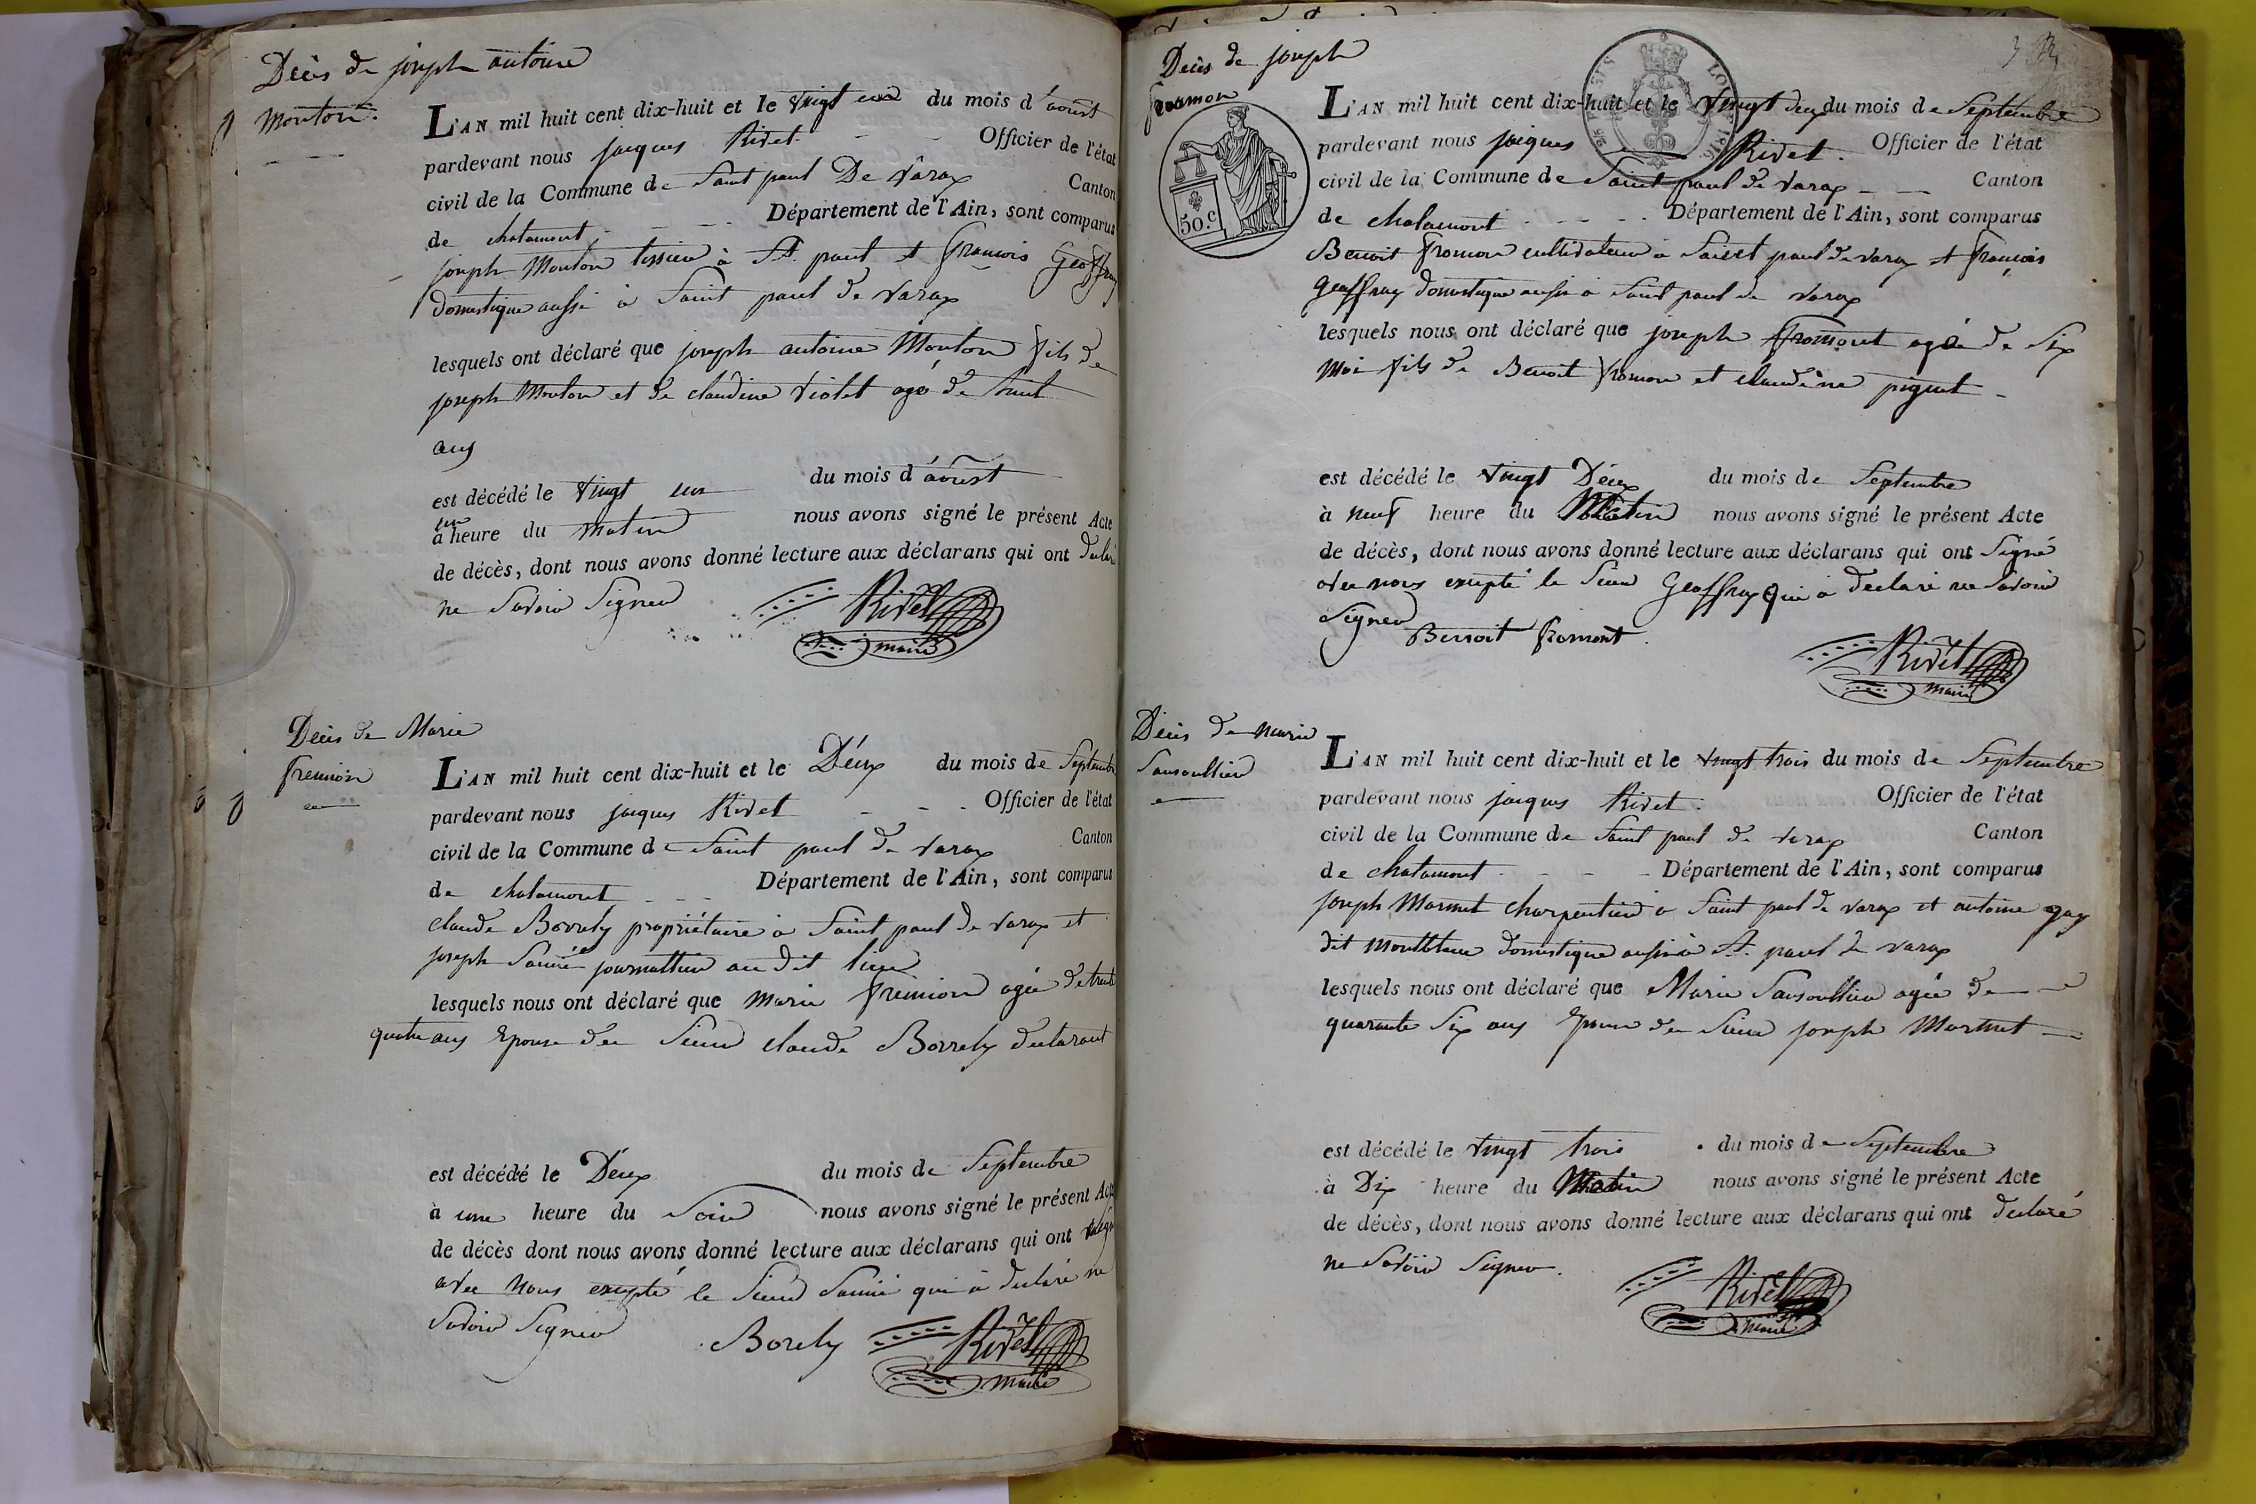 Décès de joseph antoine
Monton.
L'AN mil huit cent dix-huit et le vingt un du mois d'aoust
pardevant nous jacques Rivet Officier de l'état
civil de la Commune de Saint paul De varax Canton
de chalamont Département de l'Ain, sont comparus
joseph Monton tissieu à St. paul et francois Geoffray
domestique aussi à Saint paul de varax
lesquels ont déclaré que joseph antoine Monton fils de
joseph Monton et de claudine violet agé de huit
ans
est décédé le vingt un du mois d'aoust
à un heure du matin nous avons signé le présent Acte
de décès, dont nous avons donné lecture aux déclarans qui ont declaré
ne Savoir Signer
Rivet
maire
Décès de Marie
fremion
L'AN mil huit cent dix-huit et le Déux du mois de Septembre
pardevant nous jacques Rivet Officier de l'état
civil de la Commune de Saint paul de varax Canton
de chalamont Département de l'Ain, sont comparus
claude Borrely propriétaire à Saint paul de varax et
joseph journallier au dit lieu
lesquels nous ont déclaré que Marie fremion agée de trente
quatre ans Epouse du Sieur claude Borrely declarant
est décédé le Déux du mois de Septembre
à une heure du Soir nous avons signé le présent Acte
de décès dont nous avons donné lecture aux déclarans qui ont signé
avec nous excepté le Sieur qui à declaré ne
Savoir Signer
Borely Rivet
maire
Décès de joseph
fromon
50.c
L'AN mil huit cent dix-huit et le vingt deux du mois de Septembre
pardevant nous jacques Rivet. Officier de l'état
civil de la Commune de Saint paul de varax Canton
de chalamont Département de l'Ain, sont comparus
Benoit fromon cultivateur à Saint paul de varax et françois
geoffray domestique aussi à Saint paul de varax
lesquels nous ont déclaré que joseph fromont agé de Six
moi fils de Benoit fromon et claudine piquet
est décédé le vingt Déux du mois de Septembre
à neuf heure du Matin nous avons signé le présent Acte
de décès, dont nous avons donné lecture aux déclarans qui ont Signé
avec nous excepté le Sieur Geoffray qui à declaré ne Savoir
Signer
Benoit fromont
Rivet
maire
Décès de marie
Sansoullier
L'AN mil huit cent dix-huit et le vingt trois du mois de Septembre
pardevant nous jacques Rivet. Officier de l'état
civil de la Commune de Saint paul de varax Canton
de chalamont Département de l'Ain, sont comparus
joseph Marmet charpentier à Saint paul de varax et antoine gay
dit domestique aussi à St. paul de varax
lesquels nous ont déclaré que Marie Sansoullier agée de
quarante Six ans Epouse du Sieur joseph Marmet
est décédé le vingt trois du mois de Septembre
à Dix heure du Matin nous avons signé le présent Acte
de décès, dont nous avons donné lecture aux déclarans qui ont declaré
ne Savoir Signer.
Rivet
maire